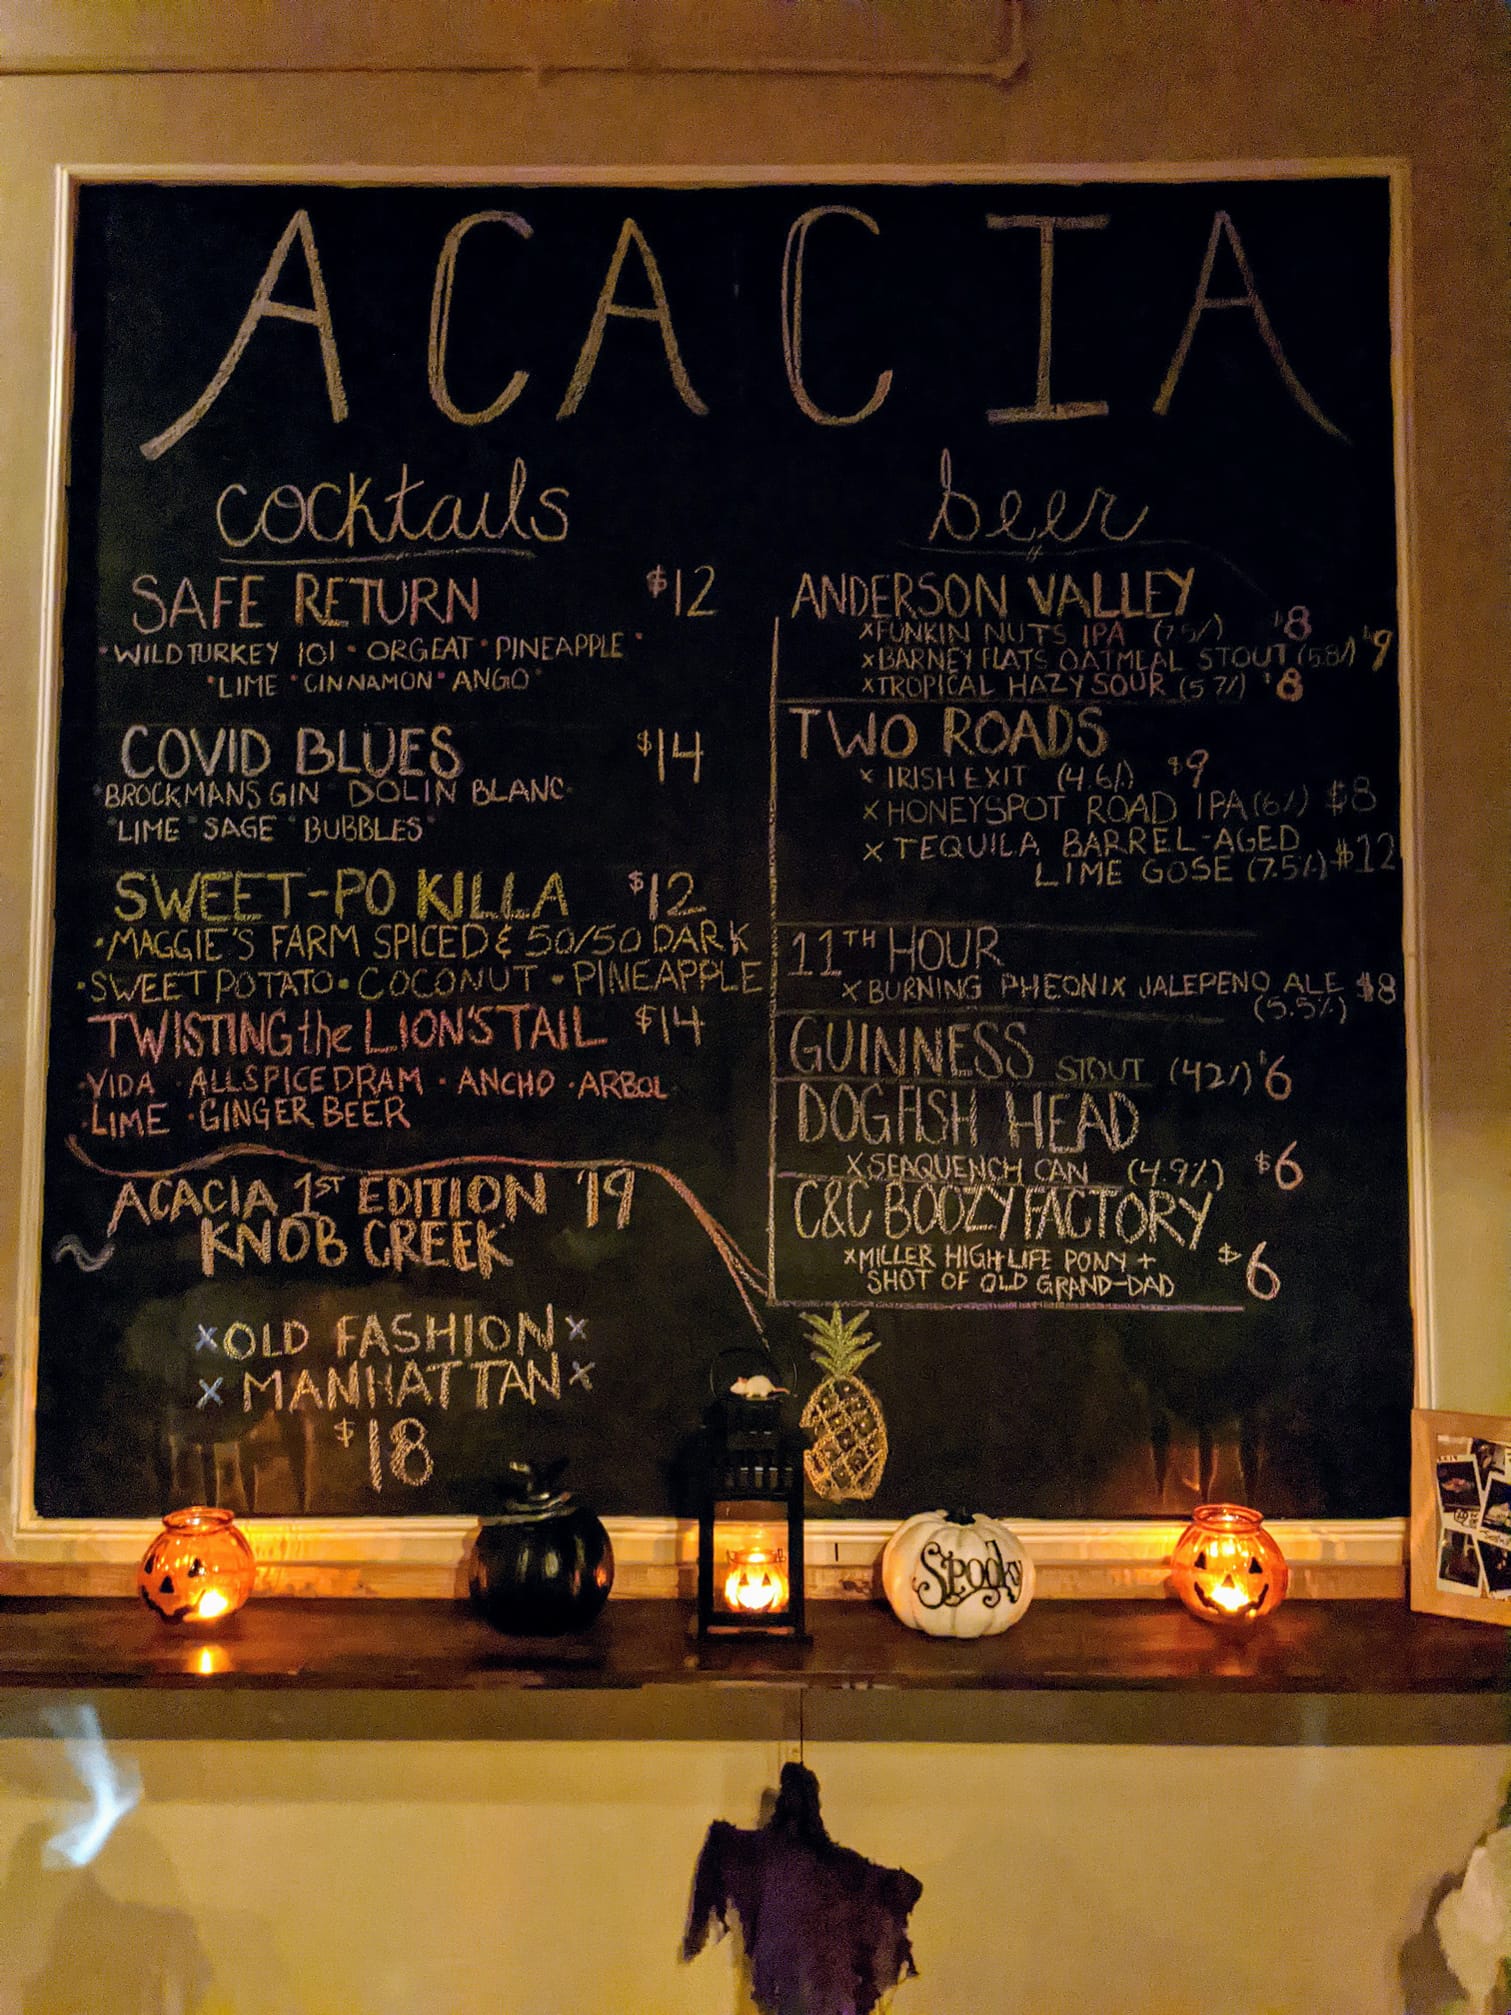 ACACIA
cocktails
SAFE RETURN $12
• WILD TURKEY 101 • ORGEAT • PINEAPPLE •
• LIME • CINNAMON • ANGO •
COVID BLUES $14
• BROCKMANS GIN • DOLIN BLANC •
• LIME • SAGE • BUBBLES •
SWEET-PO KILLA $12
• MAGGIE'S FARM SPICED & 50/50 DARK
• SWEET POTATO • COCONUT • PINEAPPLE
TWISTING the LION'S TAIL $14
• VIDA • ALLSPICE DRAM • ANCHO • ARBOL
• LIME • GINGER BEER
ACACIA 1ST EDITION '19
~ KNOB CREEK
x OLD FASHION x
x MANHATTAN x
$18
beer
ANDERSON VALLEY
x FUNKIN NUTS IPA (7.5%) $8
x BARNEY FLATS OATMEAL STOUT (5.8%) $9
x TROPICAL HAZY SOUR (5.7%) $8
TWO ROADS
x IRISH EXIT (4.6%) $9
x HONEYSPOT ROAD IPA (6%) $8
x TEQUILA BARREL-AGED
LIME GOSE (7.5%) $12
11TH HOUR
x BURNING PHEONIX JALEPENO ALE $8
(5.5%)
GUINNESS STOUT (4.2%) $6
DOGFISH HEAD
x SEAQUENCH CAN (4.9%) $6
C&C BOOZY FACTORY
x MILLER HIGH LIFE PONY + $6
SHOT OF OLD GRAND-DAD
Spooky